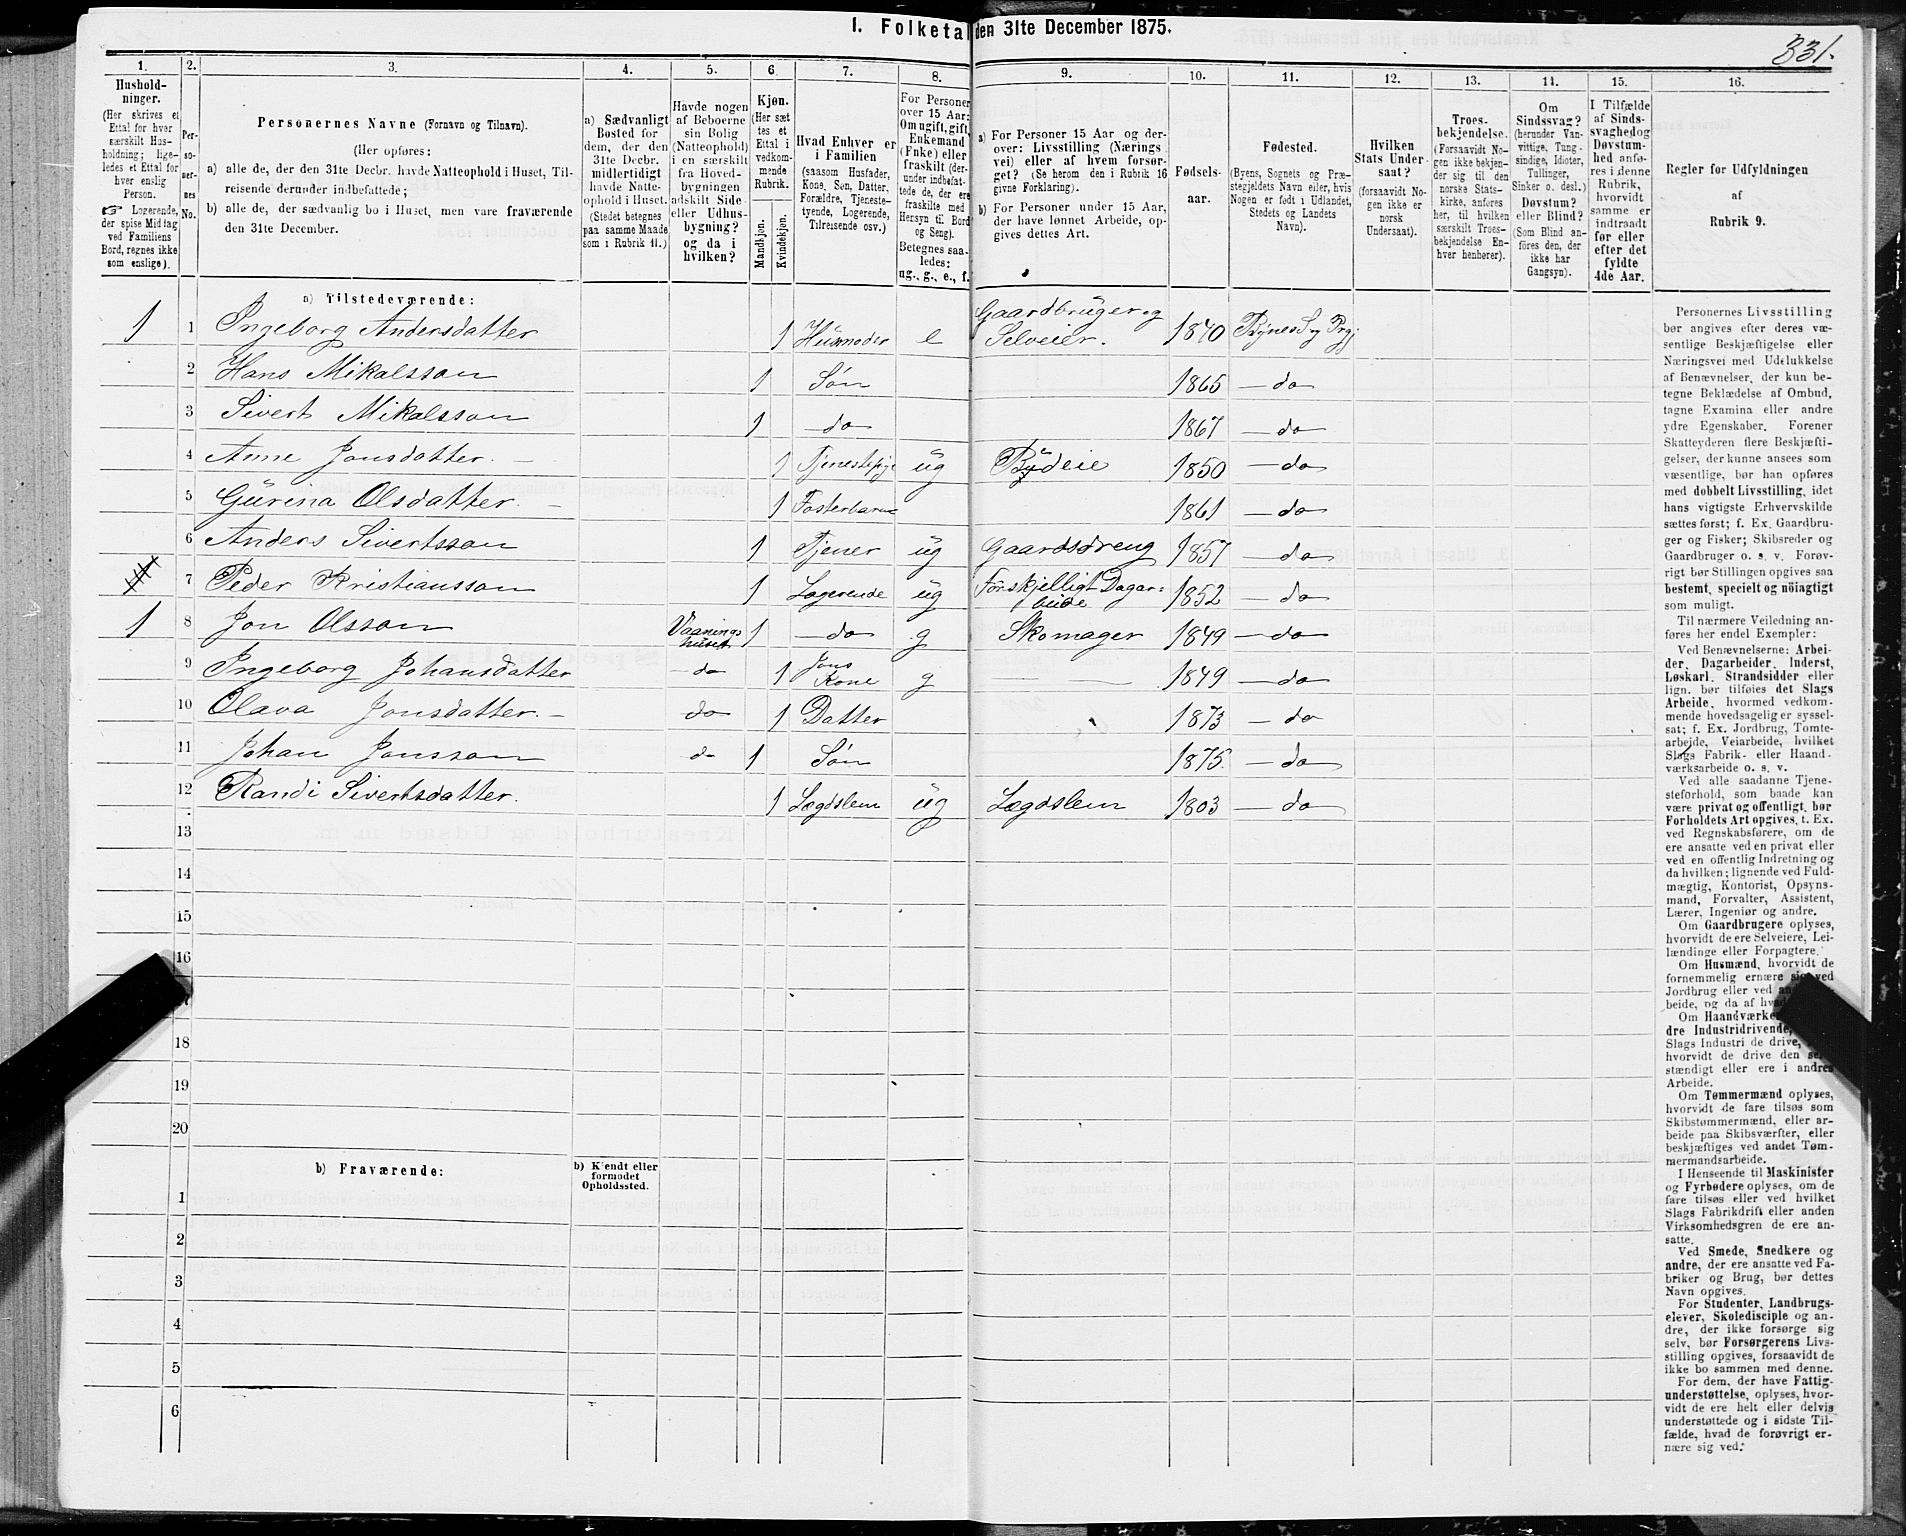 I. Folketal den 31te December 1875.
331.
1.
2.
3.
4.
5.
6
7.
8.
9.
10.
11.
12.
13.
14.
15.
16.
Hushold-
ninger.
(Her skrives et
Ettal for hver
særskilt Hus-
holdning; lige-
ledes et Ettal for
hver enslig
Person.
☞ Logerende,
der spise Middag
ved Familiens
Bord, regnes ikke
som enslige).
Per-
so-
ner-
nes
No.
Personernes Navne (Fornavn og Tilnavn).
(Her opføres:
a) alle de, der den 31te Decbr. havde Natteophold i Huset, Til-
reisende derunder indbefattede;
b) alle de, der sædvanlig bo i Huset, men vare fraværende
den 31te December.
a) Sædvanligt
Bosted for
dem, der den
31te Decbr.
midlertidigt
havde Natte-
ophold i Huset.
(Stedet betegnes
paa samme Maade
som i Rubrik 11.)
Havde nogen
af Beboerne
sin Bolig
(Natteophold)
i en særskilt
fra Hoved-
bygningen
adskilt Side-
eller Udhus-
bygning?
og da i
hvilken?
Kjøn.
(Her sæt
tes et
Ettal i
vedkom-
mende
Rubrik.
Mandkjøn.
Kvindekjøn.
Hvad Enhver er
i Familien
(saasom Husfader,
Kone, Søn, Datter,
Forældre, Tjeneste-
tyende, Logerende,
Tilreisende osv.)
For Personer
over 15 Aar:
Om ugift, gift,
Enkemand
(Enke) eller
fraskilt (der-
under indbefat-
tede de, der ere
fraskilte med
Hensyn til Bord
og Seng).
Betegnes saa-
ledes:
ug., g., e., f.
a) For Personer 15 Aar og der-
over: Livsstilling (Nærings
vei) eller af hvem forsør-
get? (Se herom den i Rubrik 16
givne Forklaring).
b) For Personer under 15 Aar,
der have lønnet Arbeide, op-
gives dettes Art.
Fødsels-
aar.
Fødested.
(Byens, Sognets og Præ-
stegjeldets Navn eller, hvis
Nogen er født i Udlandet,
Stedets og Landets
Navn).
Hvilken
Stats Under-
saat?
(forsaavidt No-
gen ikke er
norsk
Undersaat).
Troes-
bekjendelse.
(Forsaavidt No-
gen ikke bekjen-
der sig til den
norske Stats-
kirke, anføres
her, til hvilken
særskilt Troes-
bekjendelse En-
hver henhører).
Om
Sindssvag?
(herunder Van-
vittige, Tung-
sindige, Idioter,
Tullinger,
Sinker o. desl.)
Døvstum?
eller Blind?
(Som Blind an-
føres den, der
ikke har
Gangsyn).
I Tilfælde
af Sinds-
svaghed og
Døvstum-
hed anfø-
res i denne
Rubrik,
hvorvidt
samme er
indtraadt
før eller
efter det
fyldte
4de Aar.
Regler for Udfyldningen
af
Rubrik 9.
a) Tilstedeværende:
1 1 Ingeborg Andersdatter 1 Husmoder e Gaardbruger og Selveier. 1840 Bynes S. og Prg:
2 Hans Mikalsson 1 Søn 1865 — do
3 Sivert Mikalsson 1 — do 1867 — do
4 Anne Jonsdatter. 1 Tjenestepige ug Budeie 1850 — do
5 Gurina Olsdatter. 1 Fosterbarn 1861 — do
6 Anders Sivertsson 1 Tjener ug Gaardsdreng 1857 — do
7 Peder Kristiansson 1 Logerende ug Forskjelligt Dagar= beide 1852 — do
1 8 Jon Olsson Vaanings huset 1 — do g Skomager 1849 — do
9 Ingeborg Johansdatter — do 1 Jons Kone g — — 1849 — do
10 Olava Jonsdatter. — do 1 Datter 1873 — do
11 Johan Jonsson do 1 Søn 1875. — do
12 Randi Sivertsdatter. 1 Lægdslem ug Lægdslem 1803 — do
13
14
15
16
18
19
20
b) Fraværende:
b) Kjendt eller
formodet
Opholdssted.
1
2
3
4
5
6
Personernes Livsstilling
bør angives efter deres væ-
sentlige Beskjæftigelse eller
Næringsvei med Udelukkelse
af Benævnelser, der kun be-
tegne Beklædelse af Ombud,
tagne Examina eller andre
ydre Egenskaber. Forener
Skatteyderen flere Beskjæfti-
gelser, der kunne ansees som
væsentlige, bør han opføres
med dobbelt Livsstilling, idet
hans vigtigste Erhvervskilde
sættes først; f. Ex. Gaardbru-
ger og Fisker; Skibsreder og
Gaardbruger o. s. v. Forøv-
rigt bør Stillingen opgives saa
bestemt, specielt og nøiagtigt
som muligt.
Til nærmere Veiledning an-
føres her endel Exempler:
Ved Benævnelserne: Arbei-
der, Dagarbeider, Inderst,
Løskarl, Strandsidder eller
lign. bør tilføies det Slags
Arbeide, hvormed vedkom-
mende hovedsagelig er syssel-
sat; f. Ex. Jordbrug, Tomte-
arbejde, Veiarbeide, hvilket
Slags Fabrik- eller Haand-
værksarbeide o. s. v.
Ved alle saadanne Tjene-
steforhold, som baade kan
være privat og offentligt, bør
Forholdets Art opgives, t. Ex.
ved Regnskabsførere, om de
ere ansatte ved en privat eller
ved en offentlig Indretning og
da hvilken; lignende ved Fuld-
mægtig, Kontorist, Opsyns-
mand, Forvalter, Assistent,
Lærer, Ingeniør og andre.
Om Gaardbrugere oplyses,
hvorvidt de ere Selveiere, Lei-
lændinge eller Forpagtere.
Om Husmænd, hvorvidt de
fornemmelig ernære sig ved
Jordbrug eller ved
beide, og da af
Om Haandværke
dre Industridrivende,
Slags Industri de drive,
hvorvidt de drive den sel-
stændigt eller ere i andres
Arbeide.
Om Tømmermænd oplyses,
hvorvidt de fare tilsøs som
Skibstømmermænd, eller ar-
beide paa Skibsværfter, eller
beskjæftiges ved andet Tøm-
mermandsarbeide.
I Henseende til Maskinister
og Fyrbødere oplyses, om de
fare tilsøs eller ved hvilket
Slags Fabrikdrift eller anden
Virksomhedsgren de ere an-
satte.
Ved Smede, Snedkere og
andre, der ere ansatte ved Fa-
briker og Brug, bør dettes
Navn opgives.
For Studenter, Landbrugs-
elever, Skoledisciple og an-
dre, der ikke forsørge sig
selv, bør Forsørgerens Livs-
stilling opgives, forsaavidt de
ikke bo sammen med denne.
For dem, der have Fattig-
understøttelse, oplyses, hvor-
vidt de ere helt eller delvis
understøttede og i sidste Til-
fælde, hvad de forøvrigt er-
nære sig ved.